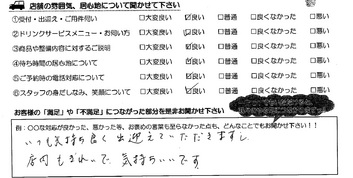 店舗の雰囲気、居心地について聞かせて下さい
①受付・出迎え・ご用件伺い □大変良い ☑良い □普通 □良くなかった □悪い
②ドリンクサービスメニュー・お伺い方 □大変良い ☑良い □普通 □良くなかった □悪い
③商品や整備内容に対するご説明 □大変良い ☑良い □普通 □良くなかった □悪い
④待ち時間の居心地について □大変良い ☑良い □普通 □良くなかった □悪い
⑤ご予約時の電話対応について □大変良い ☑良い □普通 □良くなかった □悪い
⑥スタッフの身だしなみ、笑顔について □大変良い ☑良い □普通 □良くなかった □悪い
お客様の「満足」や「不満足」につながった部分を是非お聞かせ下さい
例:○○な対応が良かった、悪かった等、お褒めの言葉も至らなかった点も、どんなことでもお聞かせ下さい!!
いつも気持ち良く出迎えていただきますし
店内もきれいで気持ちいいです